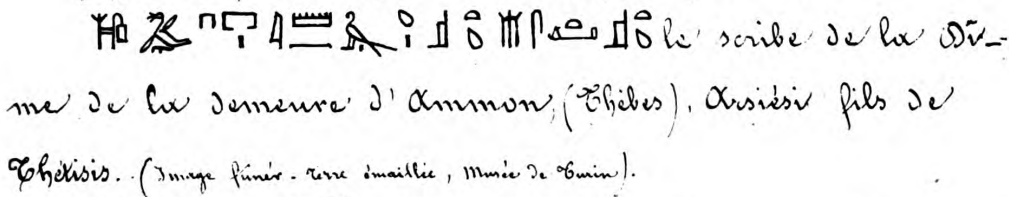 le scribe de la Dî-
me de la demeure d'Ammon, (Thèbes). Arsiési fils de
Thétisis. (Image funér. terre émaillée, Musée de Turin).